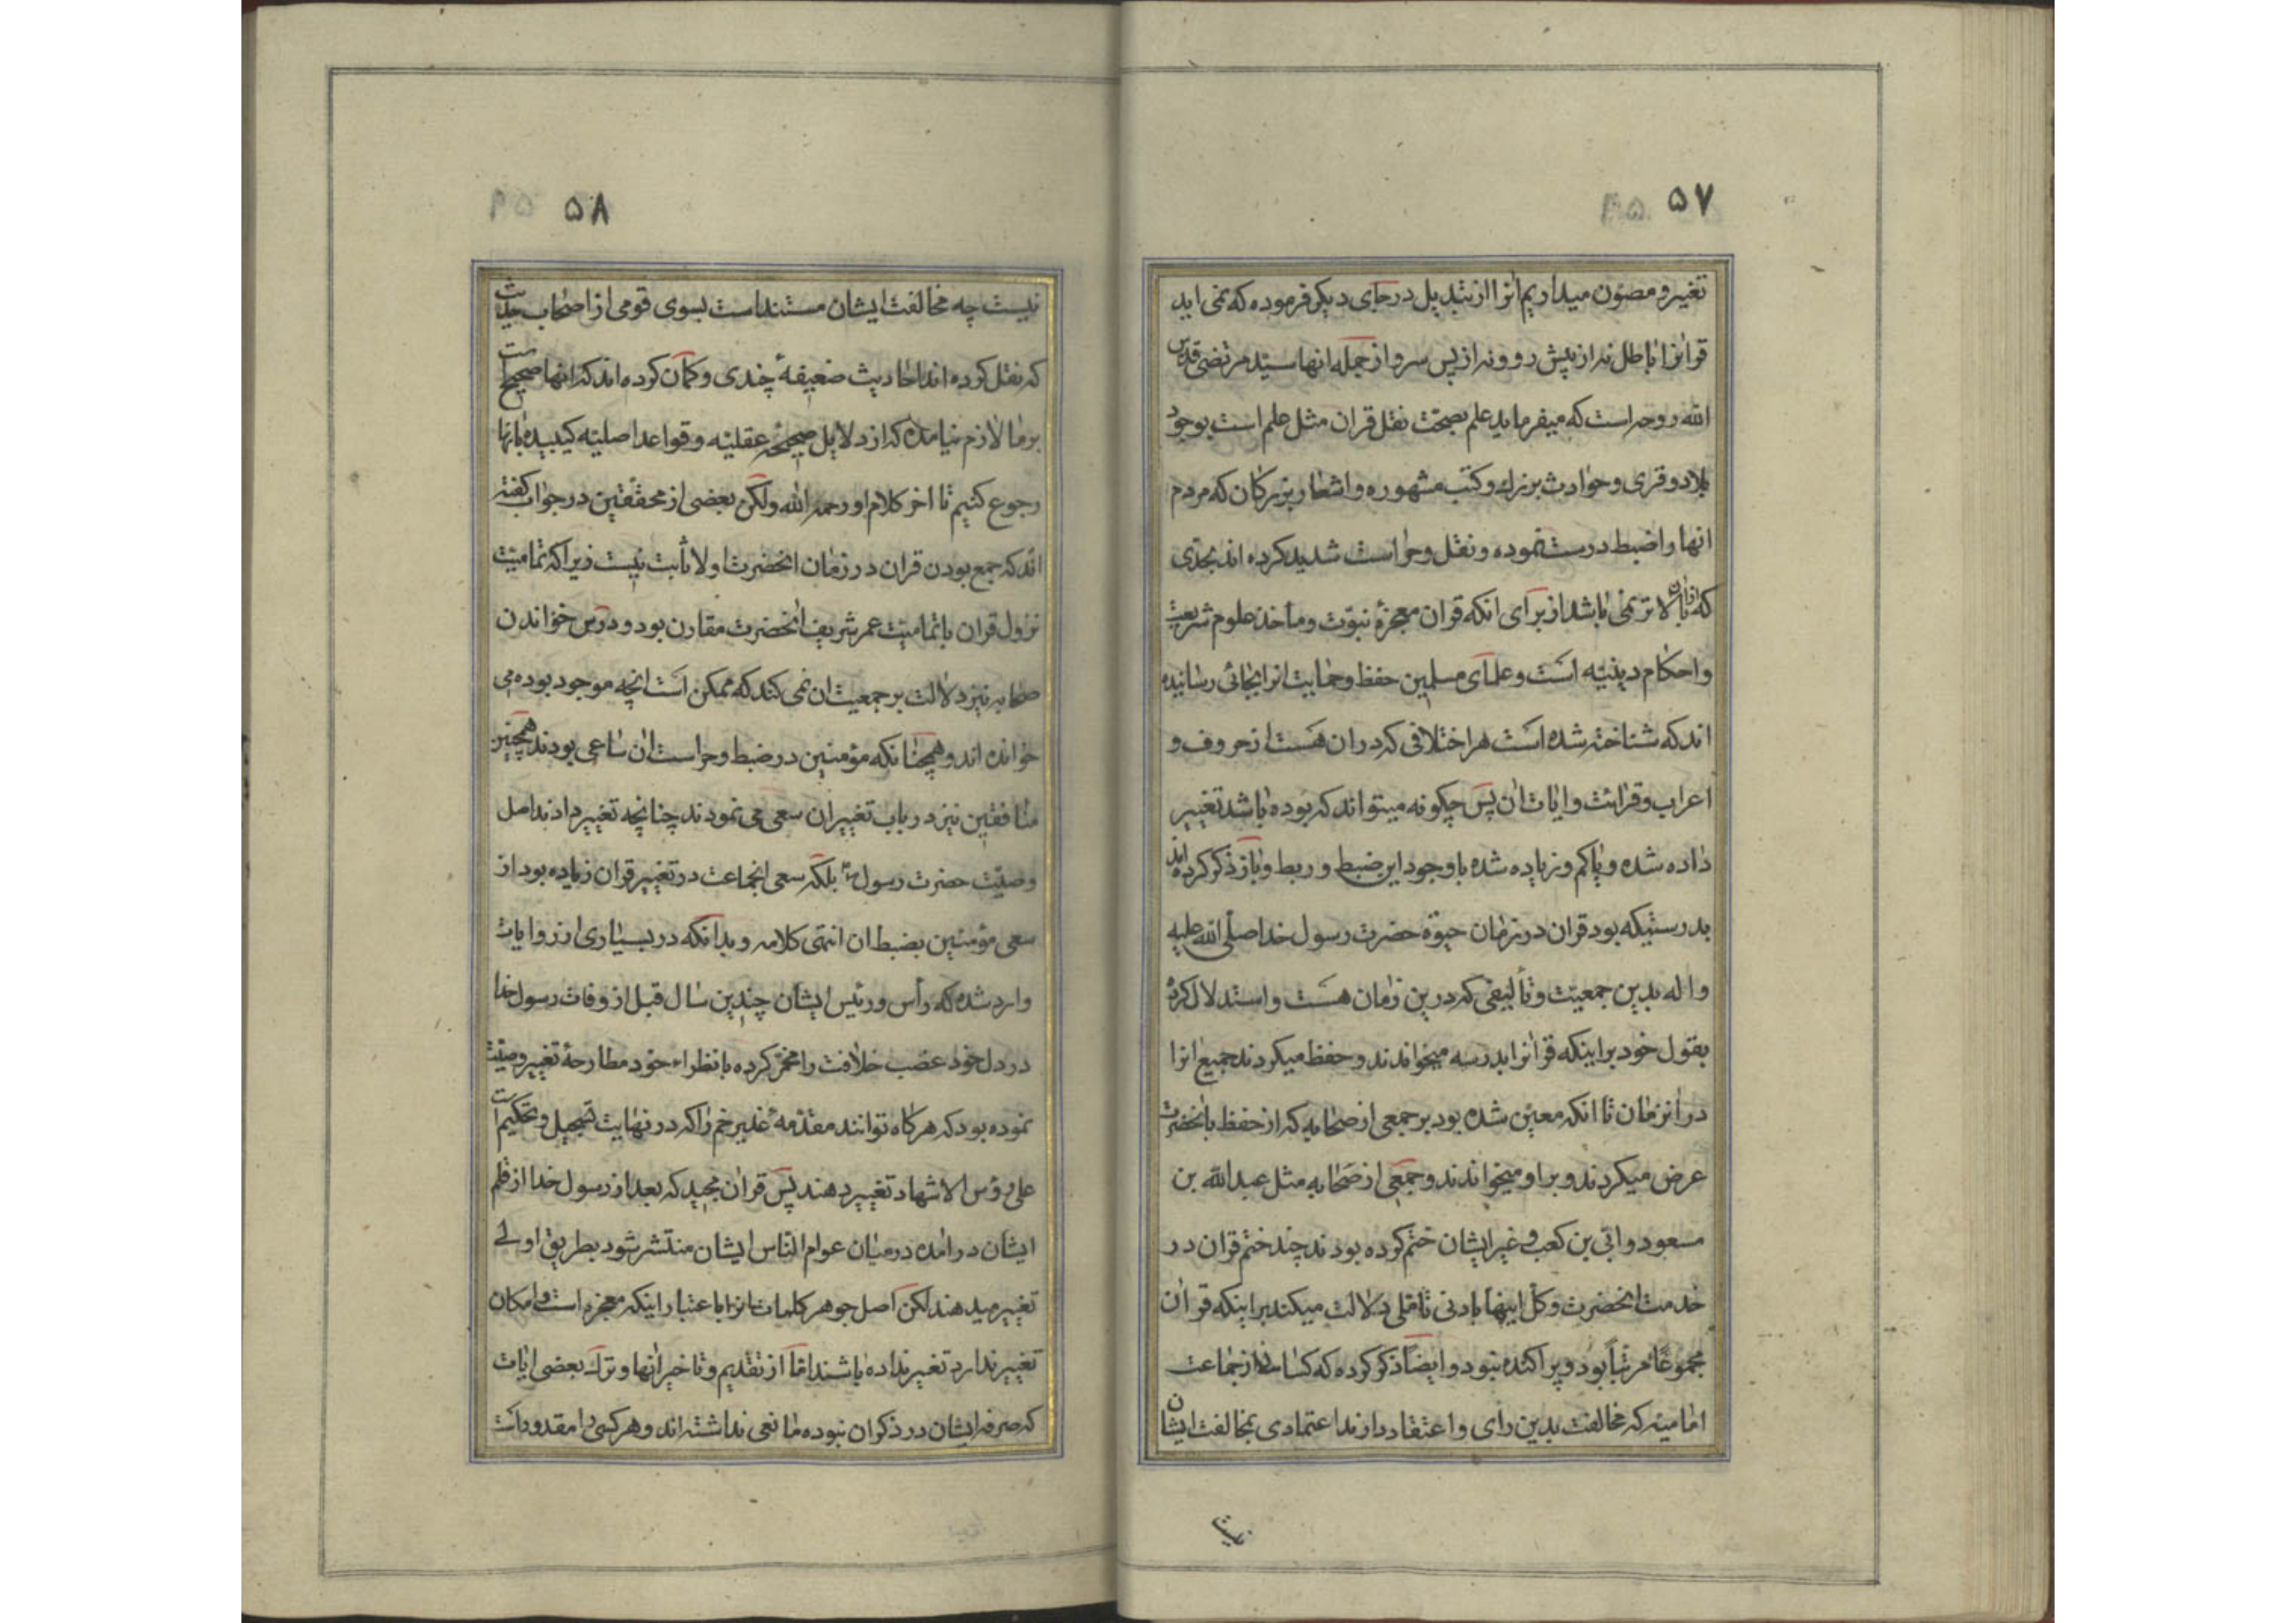 ۵۷
تغییر و مصون میداریم انرا از تبدیل در جای دیکر فرموده که نمی اید
قرانرا باطل نه از پیش رو و نه از پس سر و از جمله انها سید مرتضی قدس
الله روحه است که میفرماید علم بصحت نقل قران مثل علم است بوجود
بلاد و قری و حوادث بزرك و کتب مشهوره و اشعار بزرکان که مردم
انها را ضبط درست نموده و نقل و حراست شدید کرده اند بحدی
که از ان بالاتر نمی باشد از برای انکه قران معجزهٔ نبوت و ماخذ علوم شریعت
و احکام دینیه است و علمای مسلمین حفظ و حمایت انرا بجائی رسانیده
اند که شناخته شده است هر اختلافی که در ان هست از حروف و
اعراب و قرائت و ایات ان پس چکونه میتواند که بوده باشد تغییر
داده شده و یا کم و زیاده شده با وجود این ضبط و ربط و باز ذکر کرده اند
بدرستیکه بود قران در زمان حیوة حضرت رسول خدا صلی الله علیه
و اله بدین جمعیت و تألیفی که درین زمان هست و استدلال کرده
بقول خود بر اینکه قرانرا بدرسه میخواندند و حفظ میکردند جمیع انرا
در انزمان تا انکه معین شده بود بر جمعی از صحابه که از حفظ بانحضرت
عرض میکردند و بر او میخواندند و جمعی از صحابه مثل عبدالله بن
مسعود و ابی بن کعب و غیر ایشان ختم کرده بودند چند ختم قران در
خدمت انحضرت و کل اینها بادنی تاملی دلالت میکند بر اینکه قران
مجموعا مرتبا بود و پراکنده نبود و ایضا ذکر کرده که کسانی از جماعت
امامیه که مخالفت بدین رای و اعتقاد دارند اعتمادی بمخالفت ایشان
نیست
۵۸
نیست چه مخالفت ایشان مستند است بسوی قومی از اصحاب حدیث
که نقل کرده اند احادیث ضعیفهٔ چندی و کمان کرده اند که انها صحیح است
بر ما لازم نیامده که از دلایل صحیحه عقلیه و قواعد اصلیه کیدیده بانها
رجوع کنیم تا اخر کلام او رحمه الله ولکن بعضی از محققین در جواب کفته
اند که جمع بودن قران در زمان انحضرت اولا ثابت نیست زیرا که تمامیت
نزول قران با تمامیت عمر شریف انحضرت مقارن بود و درس خواندن
صحابه نیز دلالت بر جمعیت ان نمی کند که ممکن است انچه موجود بوده می
خوانده اند و همچنانکه مؤمنین در ضبط و حراست ان ساعی بودند همچنین
منافقین نیز در باب تغییر ان سعی می نمودند چنانچه تغییر دادند اصل
وصیت حضرت رسول ص بلکه سعی انجماعت در تغییر قران زیاده بود از
سعی مؤمنین بضبط ان انتهی کلامه و بدانکه در بسیاری از روایات
وارد شده که رأس و رئیس ایشان چندین سال قبل از وفات رسول خدا
در دل خود غصب خلافت را مخمر کرده با نظراء خود مطارحهٔ تغییر وصیت
نموده بود که هرکاه توانند مقدمهٔ غدیر خم را که در نهایت تسجیل و تحکیم است
علی رؤس الاشهاد تغییر دهند پس قران مجید که بعد از رسول خدا از قلم
ایشان در امده در میان عوام الناس ایشان منتشر شود بطریق اولی
تغییر میدهند لکن اصل جوهر کلمات انرا باعتبار اینکه معجزه است و امکان
تغییر ندارد تغییر نداده باشند اما از تقدیم و تاخیر انها و ترك بعضی ایات
که صرفه ایشان در ذکر ان نبوده مانعی نداشته اند و هر کسی را مقدور است